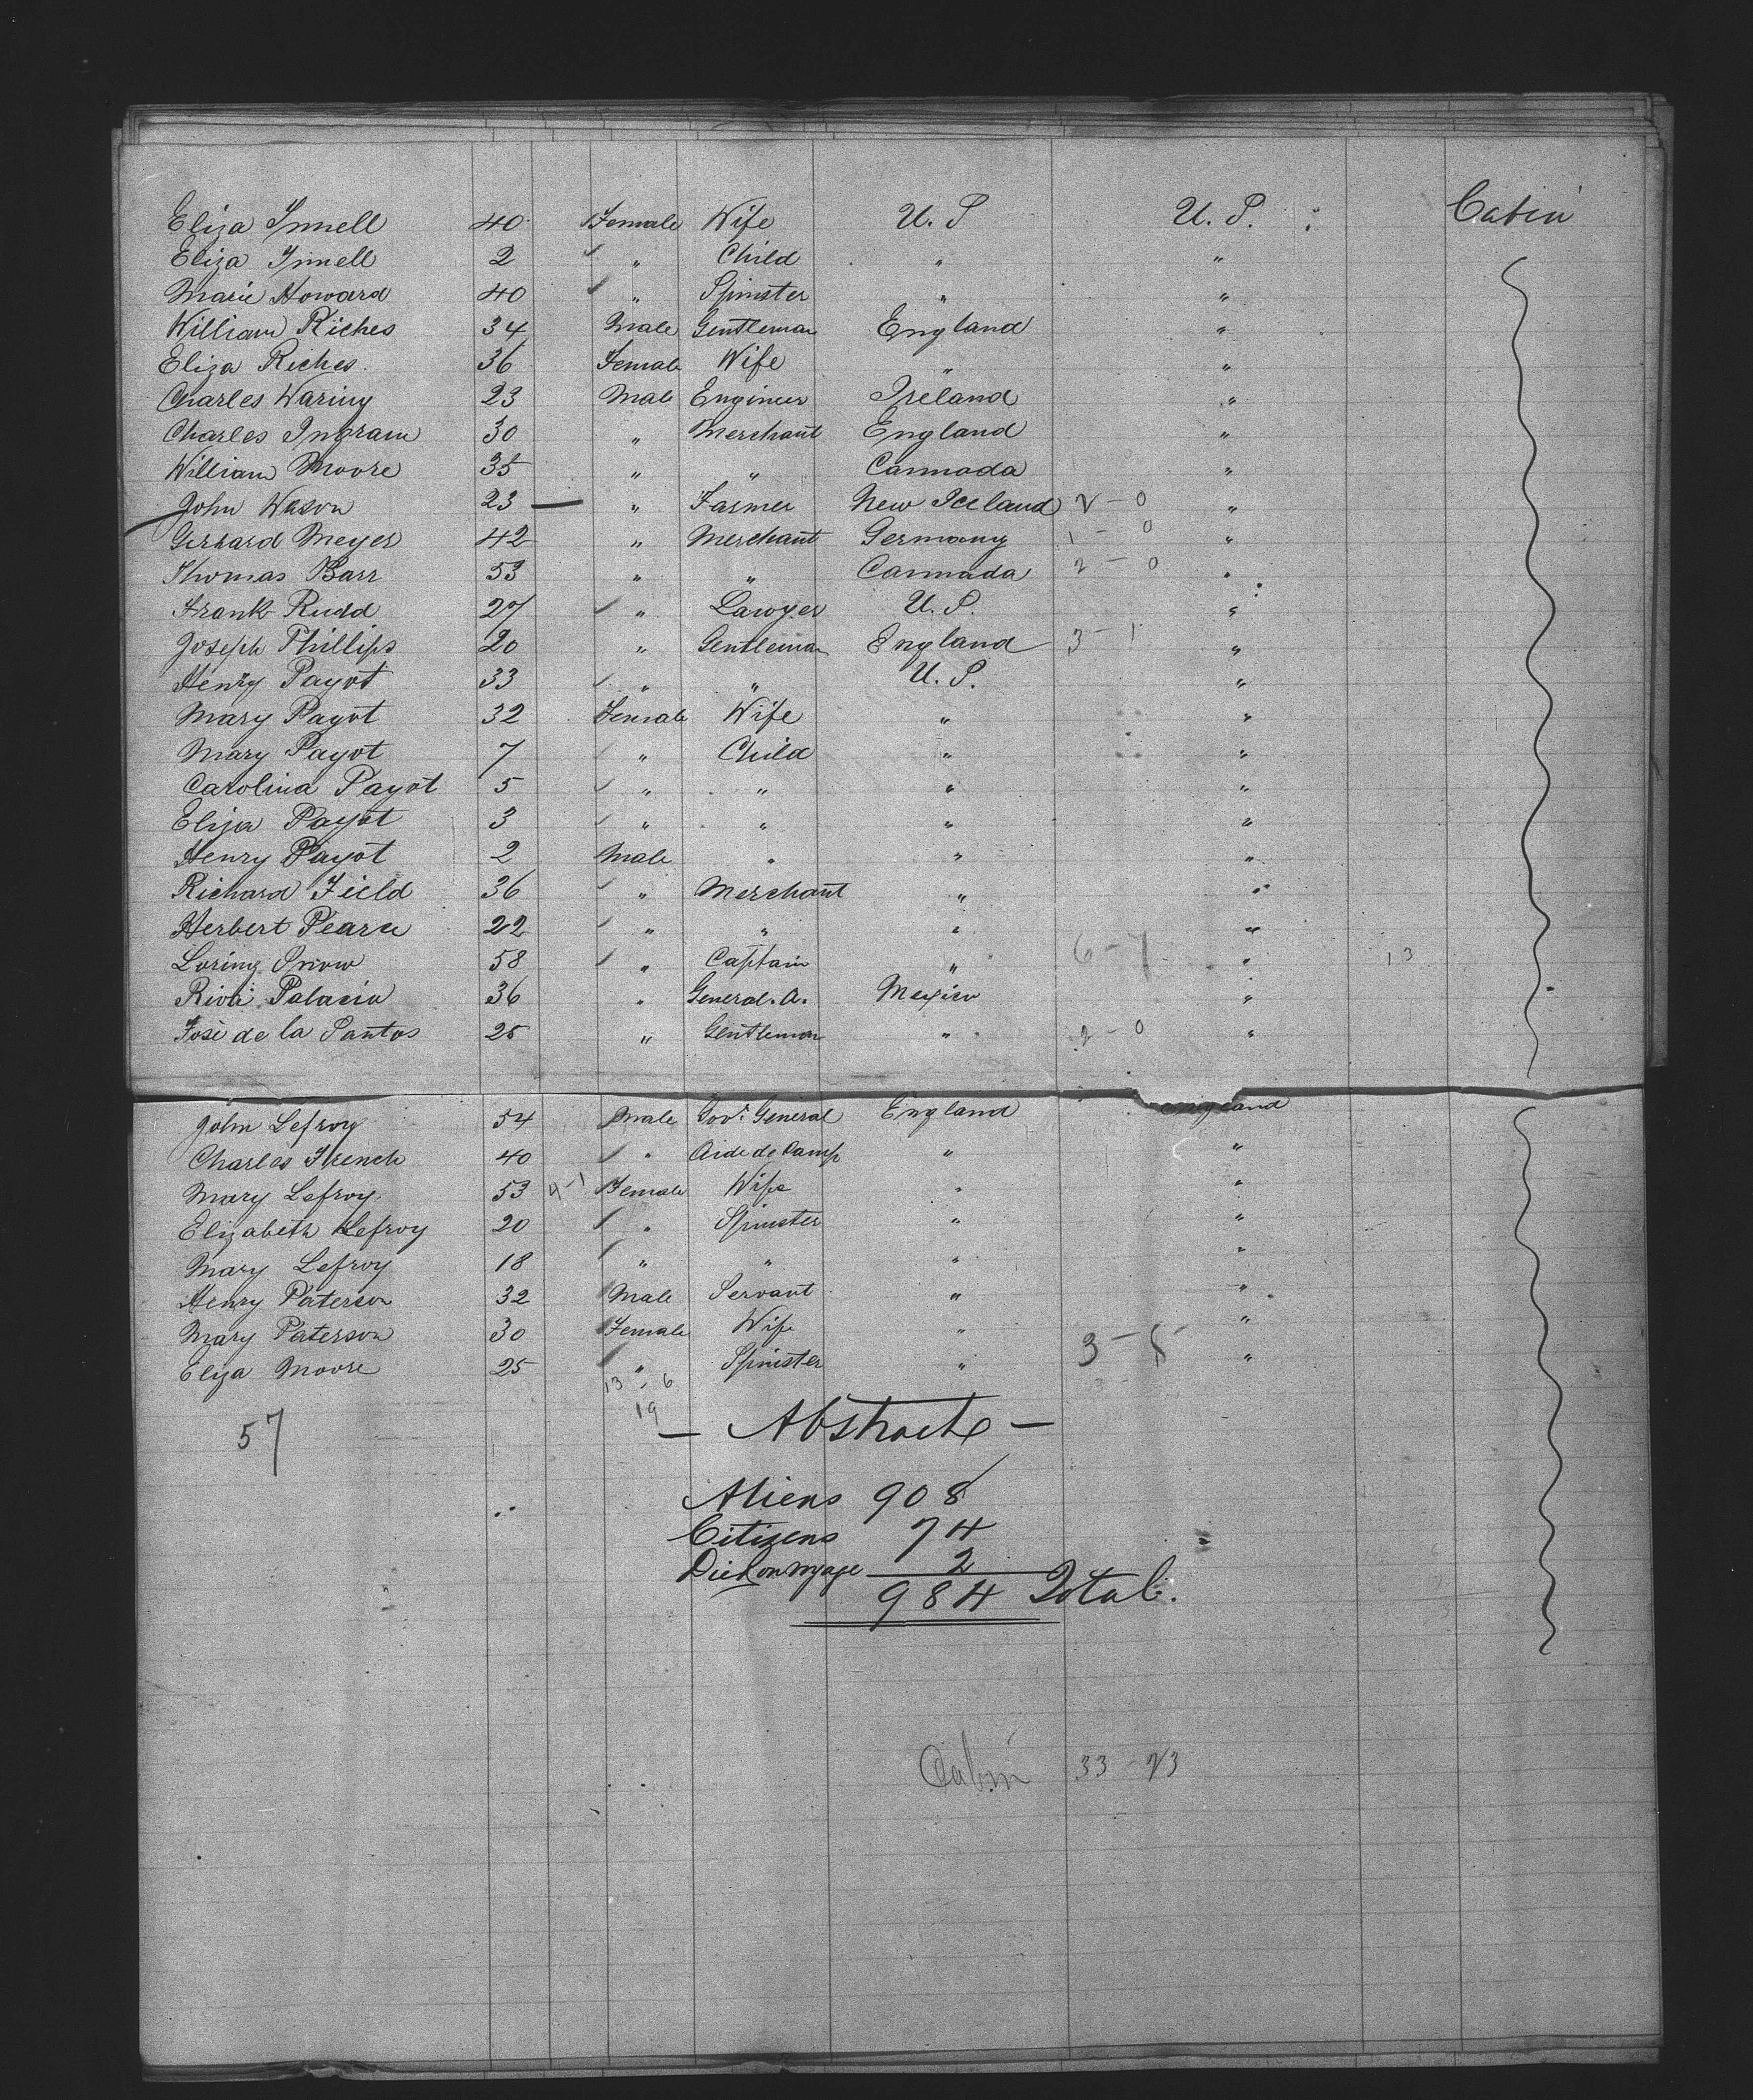 Eliza Innell 40 Female Wife U.S U.S. Cabin
Eliza Innell 2 " Child " "
Marie Howard 40 " Spinster " "
William Riches 34 Male Gentleman England "
Eliza Riches 36 Female Wife " "
Charles Waring 23 Male Engineer Ireland "
Charles Ingram 30 " Merchant England "
William Moore 35 " " Cannada "
John Wason 23 — " Farmer New Iceland 2 - 0 "
Gerhard Meyer 42 " Merchant Germany 1 - 0 "
Thomas Barr 53 " " Cannada 2 - 0 "
Frank Rudd 27 " Lawyer U.S. "
Joseph Phillips 20 " Gentleman England 3 - 1 "
Henry Payot 33 " " U.S. "
Mary Payot 32 Female Wife " "
Mary Payot 7 " Child " "
Carolina Payot 5 " " " "
Eliza Payot 3 " " " "
Henry Payot 2 Male " " "
Richard Field 36 " Merchant " "
Herbert Pearce 22 " " " "
Loring Snow 58 " Captain " 6 - 7 " 13
Riva Palacio 36 " General. A. Mexico "
José de la Santos 25 " Gentleman " 2 - 0 "
John Lefroy 54 Male Govr. General England England
Charles French 40 " Aide de Camp " "
Mary Lefroy 53 4-1 Female Wife " "
Elizabeth Lefroy 20 " Spinster " "
Mary Lefroy 18 " " " "
Henry Paterson 32 Male Servant " "
Mary Paterson 30 Female Wife " "
Eliza Moore 25 " Spinster " 3 - 5 "
13 - 6
19
57
— Abstract —
Aliens 908
Citizens 74
Died on voyage 2
984 Total.
Cabin 33 - 23